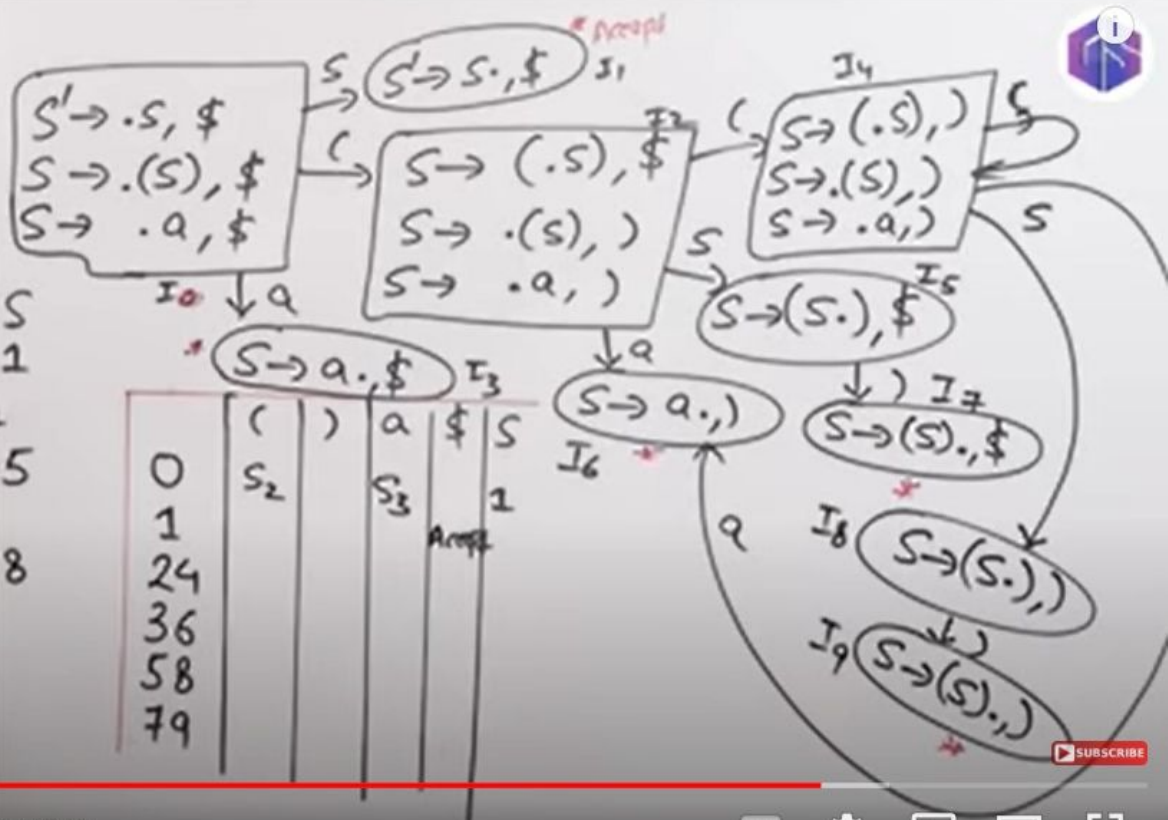 * Accept
S' → .S, $
S → .(S), $
S → .a, $
I0
S
S' → S., $
I1
(
I2
S → (.S), $
S → .(S), )
S → .a, )
(
I4
S → (.S), )
S → .(S), )
S → .a, )
(
S
S
I5
S → (S.), $
a
* S → a., $ I3
a
S → a., )
I6 *
) I7
S → (S)., $
*
a
I8
S → (S.), )
)
I9
S → (S)., )
*
S
1
5
8
( ) a $ S
0 S2 S3 1
1 Accept
24
36
58
79
i
SUBSCRIBE